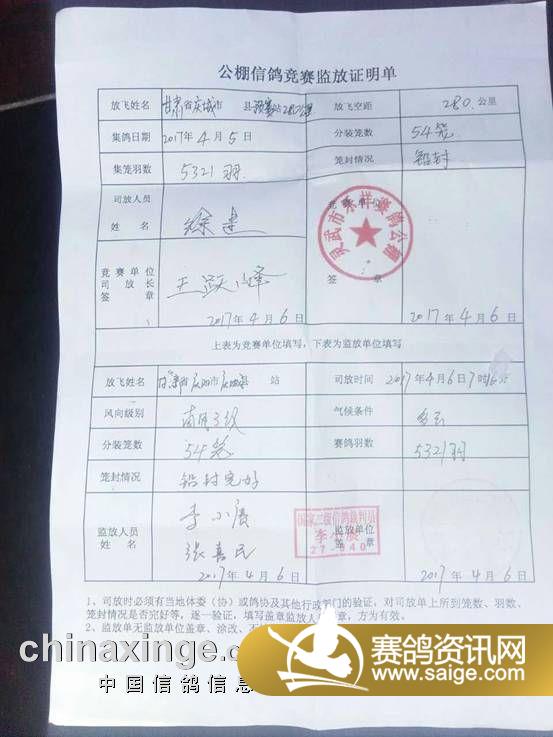 公棚信鸽竞赛监放证明单
放飞姓名 甘肃省庆城市 县 预赛站280公里 放飞空距 280 公里
集鸽日期 2017年4月5日 分装笼数 54笼
集笼羽数 5321羽 笼封情况 铅封
司放人员 姓名 徐建 竞赛单位 签章
灵武市东祥赛鸽公棚
竞赛单位 司放长 签章 王跃峰
2017年4月6日 2017年4月6日
上表为竞赛单位填写,下表为监放单位填写
放飞姓名 甘肃省庆阳市庆城县 站 司放时间 2017年4月6日7时16分
风向级别 南风3级 气候条件 多云
分装笼数 54笼 赛鸽羽数 5321羽
笼封情况 铅封完好
监放人员 姓名 李小展 张喜民 监放单位 签章
国家二级信鸽裁判员
李小展
27-040
2017年4月6日 2017年4月6日
1、司放时必须有当地体委(协)或鸽协及其他行政部门的验证,对司放单上所到笼数、羽数、
笼封情况是否完好等,逐一验证,填写盖章监放人 章,方为有效。
2、监放单无监放单位盖章、涂改、
chinaxinge.c
中国信鸽信息
赛鸽资讯网
www.saige.com